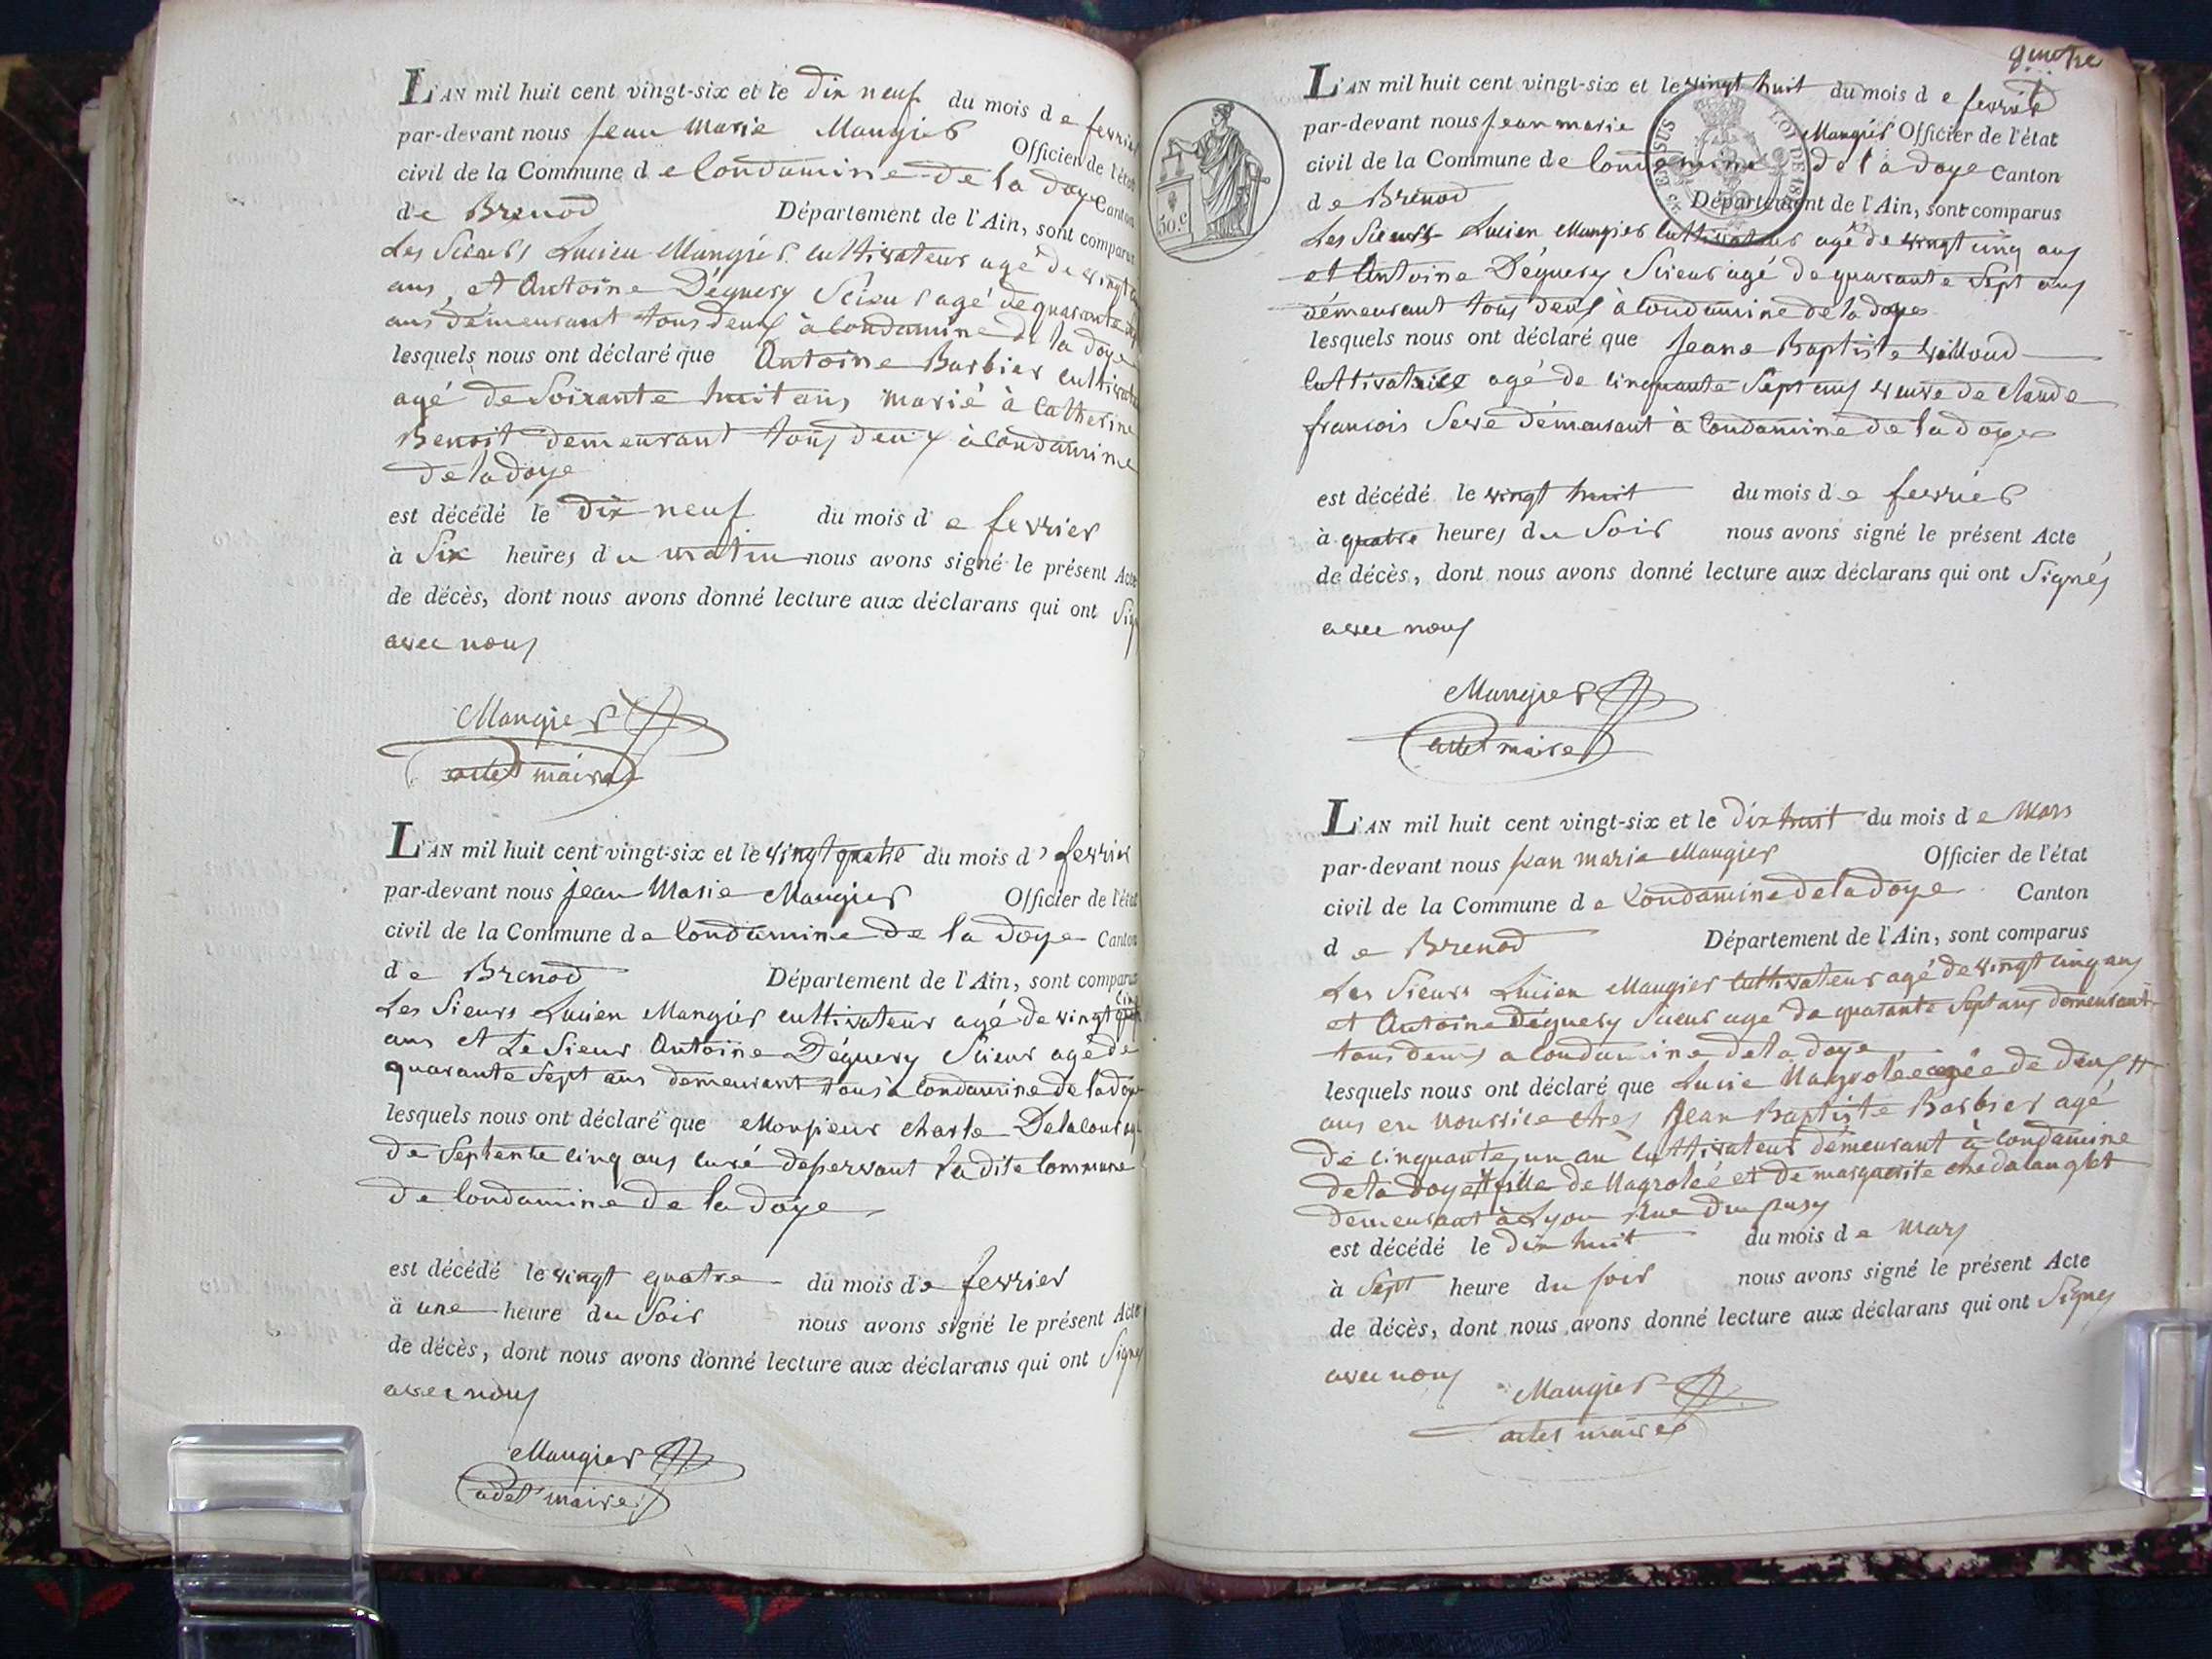 L'AN mil huit cent vingt-six et le dix neuf du mois de fevrier
par-devant nous jean Marie Maugier Officier de l'état
civil de la Commune de Condamine de la doye Canton
de Brenod Département de l'Ain, sont comparus
Les Sieurs Lucien Maugier cultivateur agé de vingt
ans, et Antoine Déguery Scieur agé de quarante
ans démeurant tous deux à Condamine de la doye
lesquels nous ont déclaré que Antoine Barbier
agé de Soixante huit ans marié à Catherine
Benoit demeurant tous deux à Condamine
de la doye
est décédé le dix neuf du mois de fevrier
à Six heures du matin nous avons signé le présent Acte
de décès, dont nous avons donné lecture aux déclarans qui ont
avec nous
Maugier
adet maire
L'AN mil huit cent vingt-six et le vingt quatre du mois d' fevrier
par-devant nous jean Marie Maugier Officier de l'état
civil de la Commune de Condamine de la doye Canton
de Brenod Département de l'Ain, sont comparus
cinq
Les Sieurs Lucien Maugier cultivateur agé de vingt
ans et Le Sieur Antoine Déguery Scieur agé de
quarante Sept ans demeurant tous à Condamine de la doye
lesquels nous ont déclaré que Monsieur charle Delacour
de Septente cinq ans curé deservant la dite Commune
de Condamine de la doye
est décédé le vingt quatre du mois de fevrier
à une heure du Soir nous avons signé le présent Acte
de décès, dont nous avons donné lecture aux déclarans qui ont Signés
avec nous
Maugier
adet maire
quatre
L'AN mil huit cent vingt-six et le vingt huit du mois de fevrier
par-devant nous jean marie Maugier Officier de l'état
civil de la Commune de Condamine de la doye Canton
de Brenod Département de l'Ain, sont comparus
Les Sieurs Lucien Maugier Cultivateur agé de vingt cinq ans
et Antoine Déguery Scieur agé de quarante Sept ans
démeurant tous deux à Condamine de la doye
lesquels nous ont déclaré que Jeane Baptiste
Cultivatrice agé de cinquante Sept ans veuve de Claude
francois Serve démeurant à Condamine de la doye
est décédé le vingt huit du mois de fevrier
à quatre heures du Soir nous avons signé le présent Acte
de décès, dont nous avons donné lecture aux déclarans qui ont Signés
avec nous
Maugier
adet maire
50.c
L'AN mil huit cent vingt-six et le dix huit du mois de Mars
par-devant nous jean marie Maugier Officier de l'état
civil de la Commune de Condamine de la doye Canton
de Brenod Département de l'Ain, sont comparus
Les Sieurs Lucien Maugier Cultivateur agé de vingt cinq ans
et Antoine Déguery Scieur agé de quarante Sept ans demeurant
tous deux a Condamine de la doye
lesquels nous ont déclaré que Lucie agée de deux
ans en nourrice chez Jean Baptiste Barbier agé
de cinquante un an Cultivateur démeurant à Condamine
de la doye fille de et de marguerite
demeurant à Lyon rue
est décédé le dix huit du mois de Mars
à Sept heure du soir nous avons signé le présent Acte
de décès, dont nous avons donné lecture aux déclarans qui ont Signés
avec nous
Maugier
adet maire